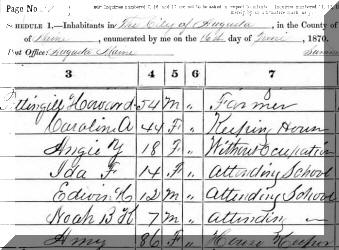 Page No.
SCHEDULE 1.—Inhabitants in The City of Augusta, in the County
of, enumerated by me on the 16th day of June, 1870.
Post Office: Augusta Maine
3 4 5 6 7
Pettingill Howard 54 M " Farmer
Caroline A 44 F " Keeping House
Angie 18 F " Without Occupation
Ida F 14 F " Attending School
Edwin H 12 M " Attending School
Noah B H 7 M " attending "
Amy 86 F " House Keeper